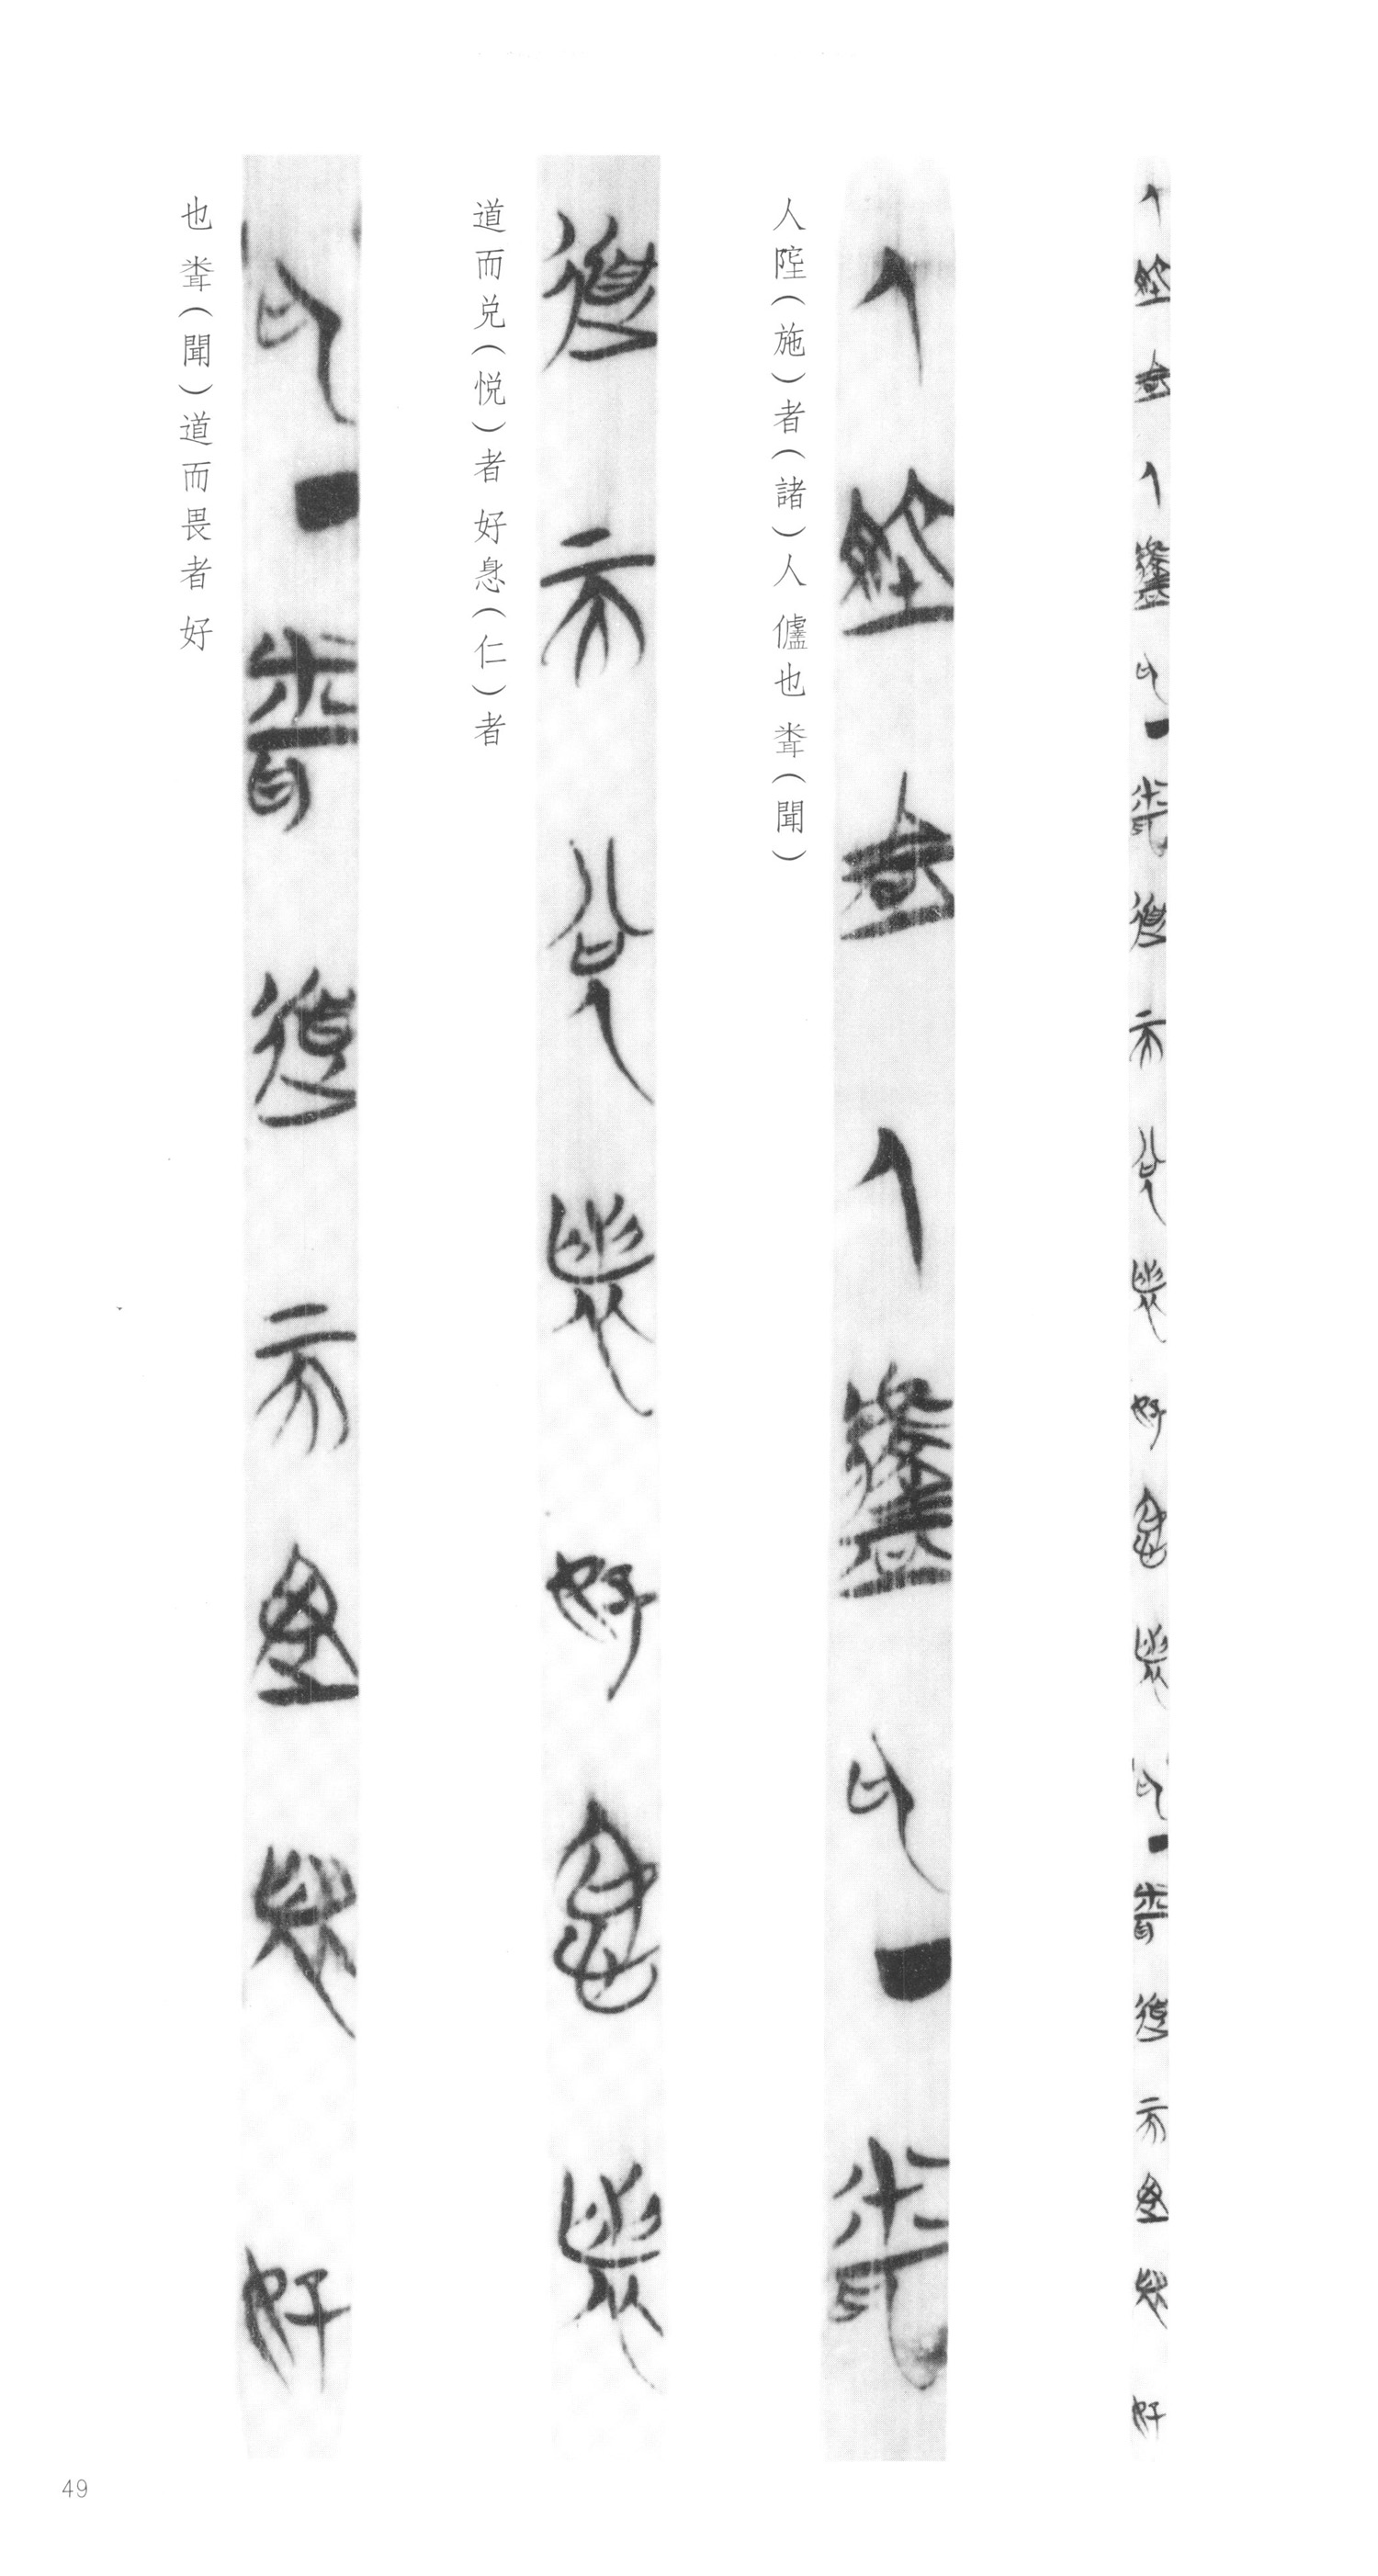 人陞（施）者（諸）人 㒧也 𦖞（聞）
道而兑（悦）者 好㥯（仁）者
也 𦖞（聞）道而畏者 好
49